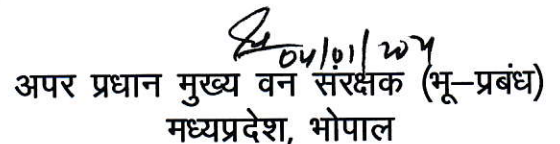 04/01/2024
अपर प्रधान मुख्य वन संरक्षक (भू–प्रबंध)
मध्यप्रदेश, भोपाल